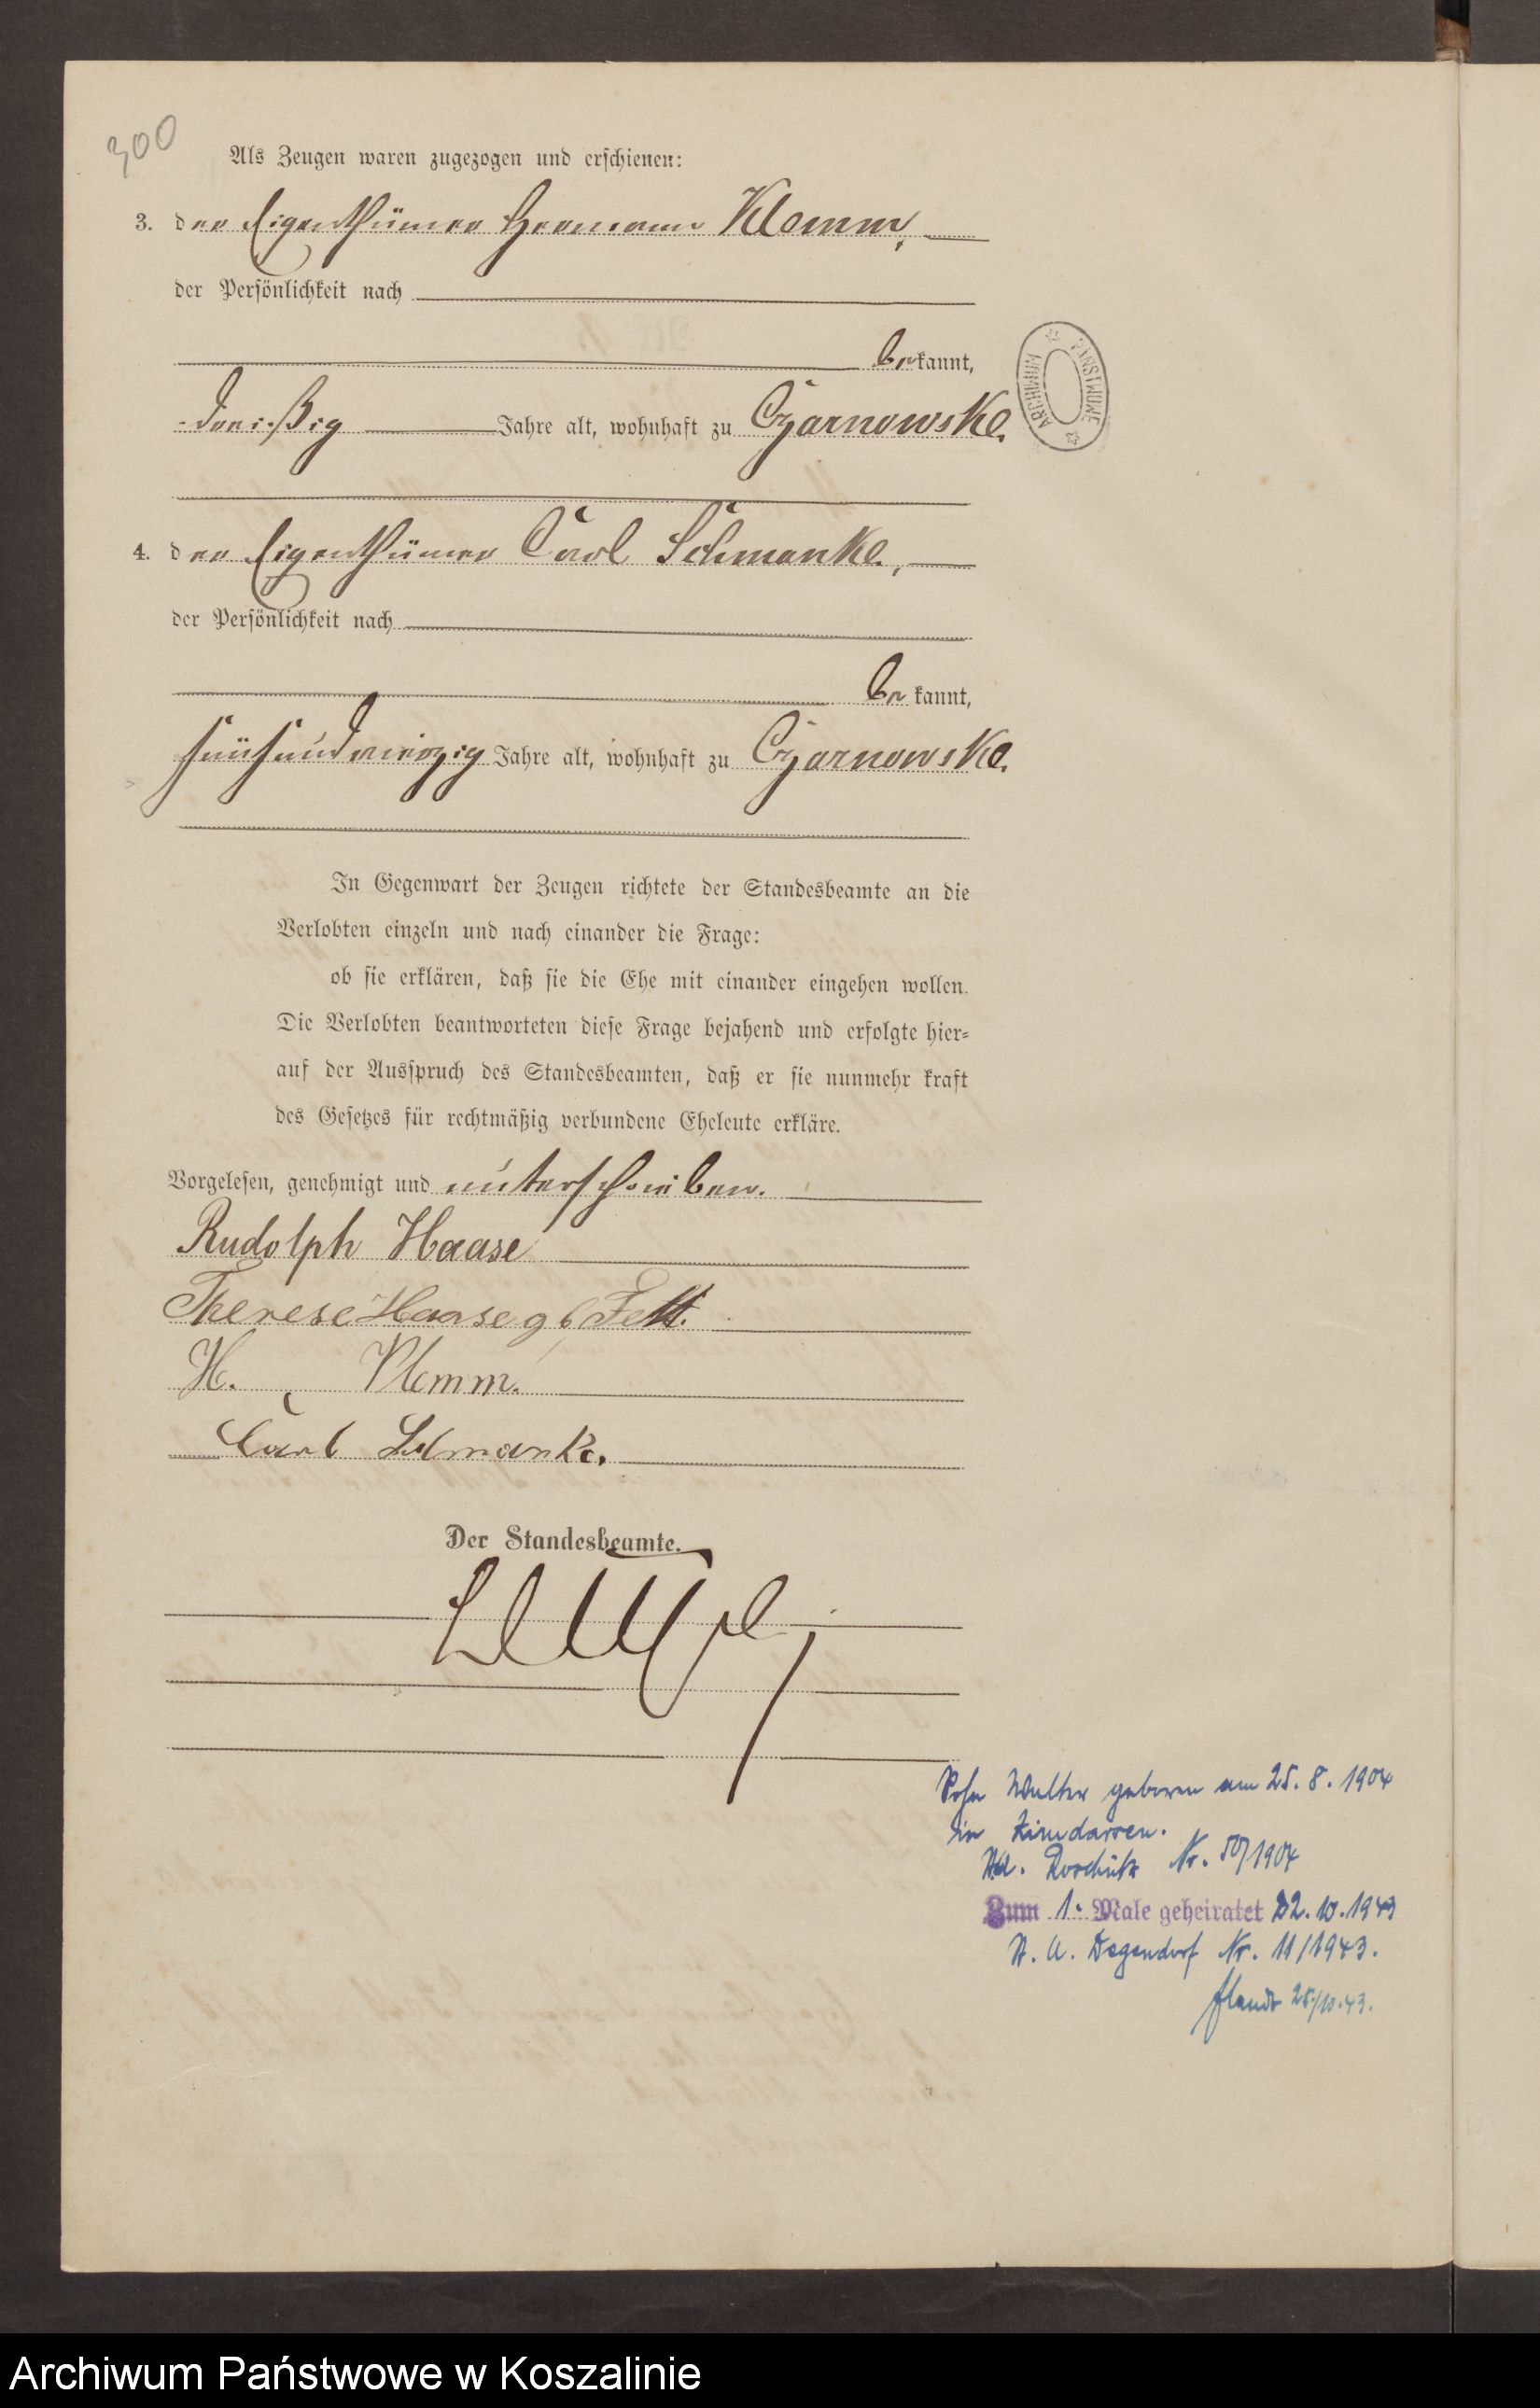 300
Als Zeugen waren zugezogen und erschienen:
3. der Eigenthümer Hermann Klemm,
der Persönlichkeit nach
bekannt,
dreißig Jahre alt, wohnhaft zu Czarnowske.
ARCHIWUM PAŃSTWOWE
4. der Eigenthümer Carl Schmanke,
der Persönlichkeit nach
bekannt,
fünfundvierzig Jahre alt, wohnhaft zu Czarnowske.
In Gegenwart der Zeugen richtete der Standesbeamte an die
Verlobten einzeln und nach einander die Frage:
ob sie erklären, daß sie die Ehe mit einander eingehen wollen.
Die Verlobten beantworteten diese Frage bejahend und erfolgte hier-
auf der Ausspruch des Standesbeamten, daß er sie nunmehr kraft
des Gesetzes für rechtmäßig verbundene Eheleute erkläre.
Vorgelesen, genehmigt und unterschrieben.
Rudolph Haase
Therese Haase gb Fett.
H. Klemm.
Carl Schmanke.
Der Standesbeamte.
Sohn Walter geboren am 25. 8. 1904
in Zindarren.
Nr. 50/1904
Zum 1. Male geheiratet 22. 10. 1943
St. A. Degendorf Nr. 11/1943.
25./10.43.
Archiwum Państwowe w Koszalinie